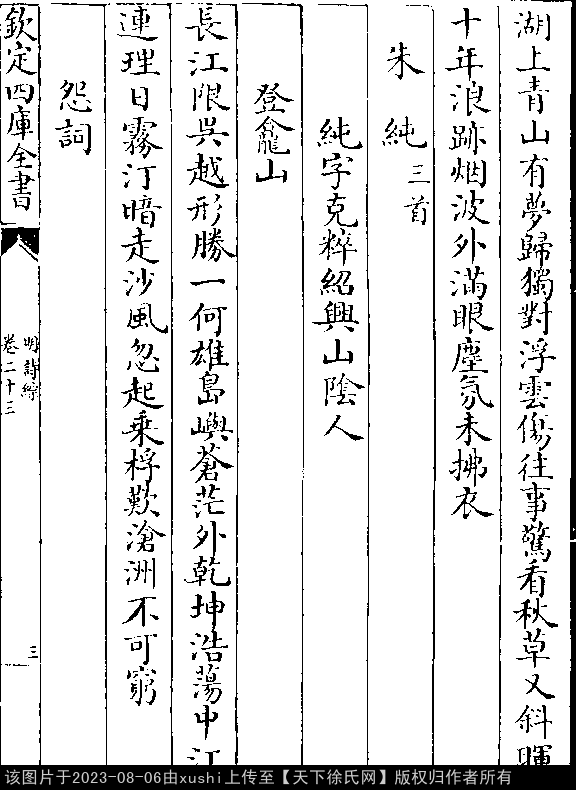 湖上青山有夢歸獨對浮雲傷往事驚看秋草又斜暉
十年浪跡烟波外滿眼塵氛未拂衣
朱純三首
純字克粹紹興山陰人
登龕山
長江限吳越形勝一何雄島嶼蒼茫外乾坤浩蕩中江
連理日霧汀暗走沙風忽起乗桴歎滄洲不可窮
怨詞
欽定四庫全書
明詩綜
卷二十三
三
该图片于2023-08-06由xushi上传至【天下徐氏网】版权归作者所有